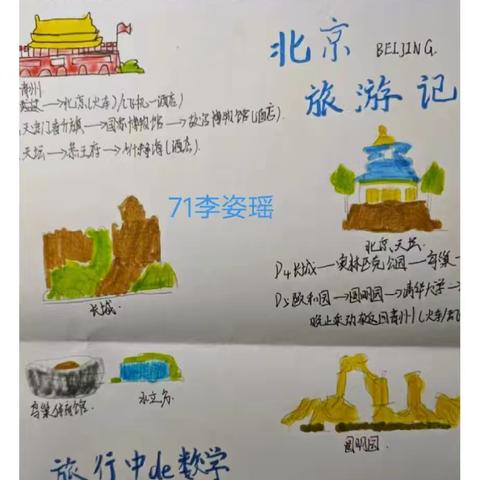 北京 BEIJING.
旅游记
青州
→北京(火车)/飞机→酒店)
天安门看升旗→国家博物馆→故宫博物馆(酒店).
天坛→恭王府→什刹海(酒店).
71李姿瑶
北京、天坛.
D4长城—奥林匹克公园—鸟巢—
D5颐和园→圆明园→清华大学→
晚上乘动车返回青州(火车/飞
长城.
鸟巢体育馆.
水立方.
圆明园.
旅行中de数学